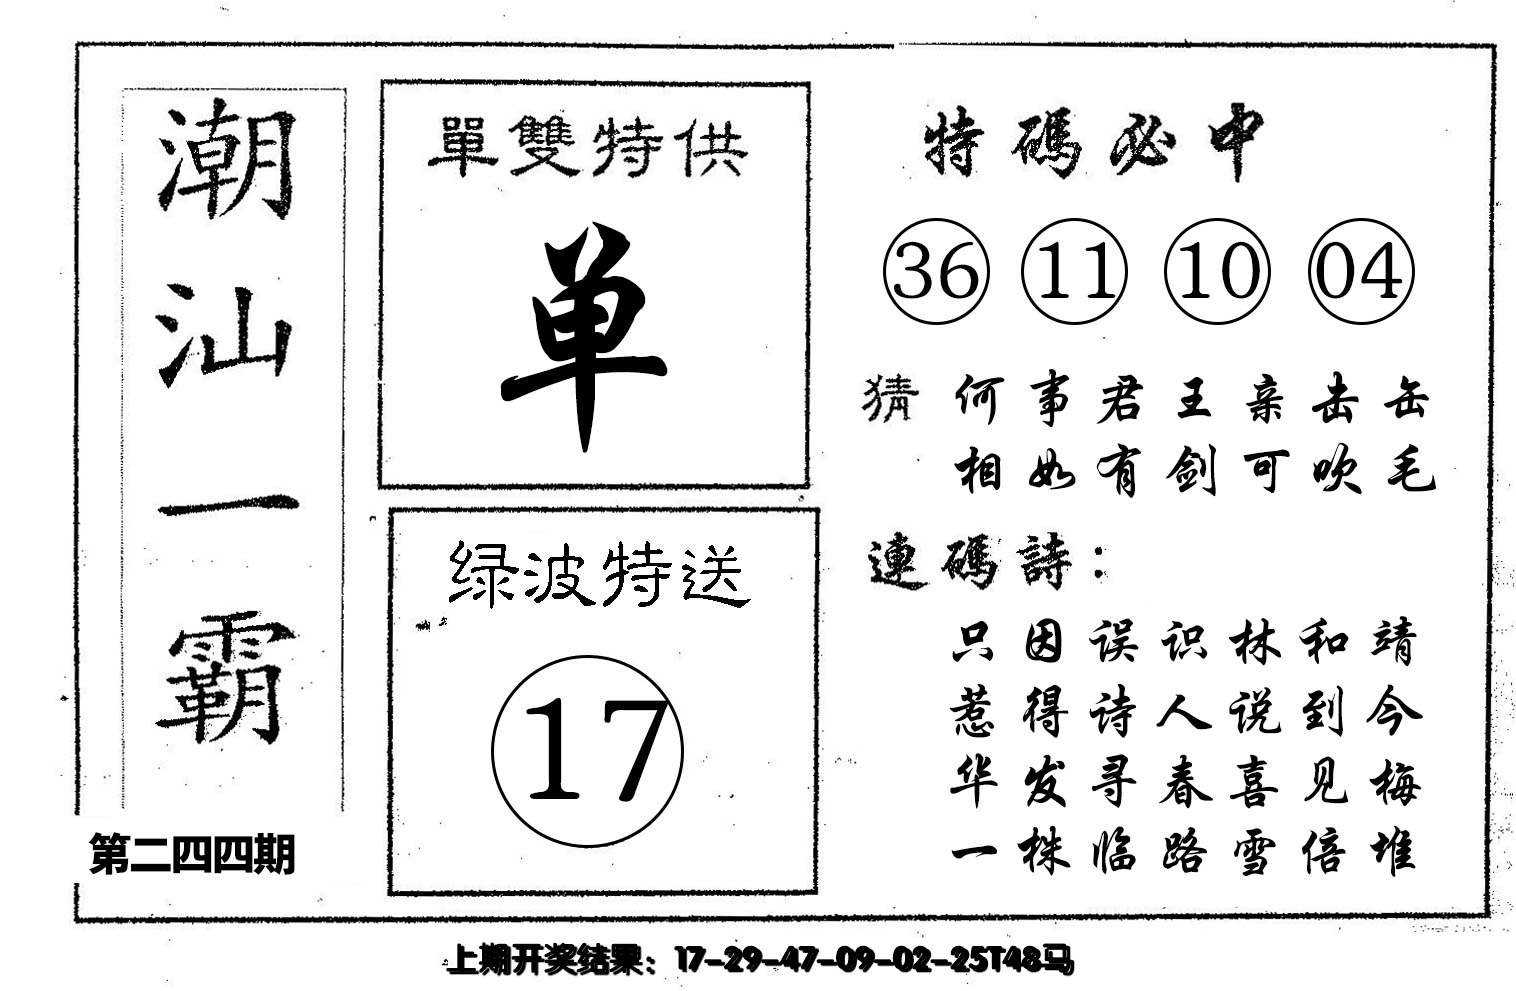 潮汕一霸
第二四四期
單雙特供
单
绿波特送
17
特碼必中
36 11 10 04
猜 何事君王亲击缶
相如有剑可吹毛
連碼詩：
只因误识林和靖
惹得诗人说到今
华发寻春喜见梅
一株临路雪倍堆
上期开奖结果：17-29-47-09-02-25T48马